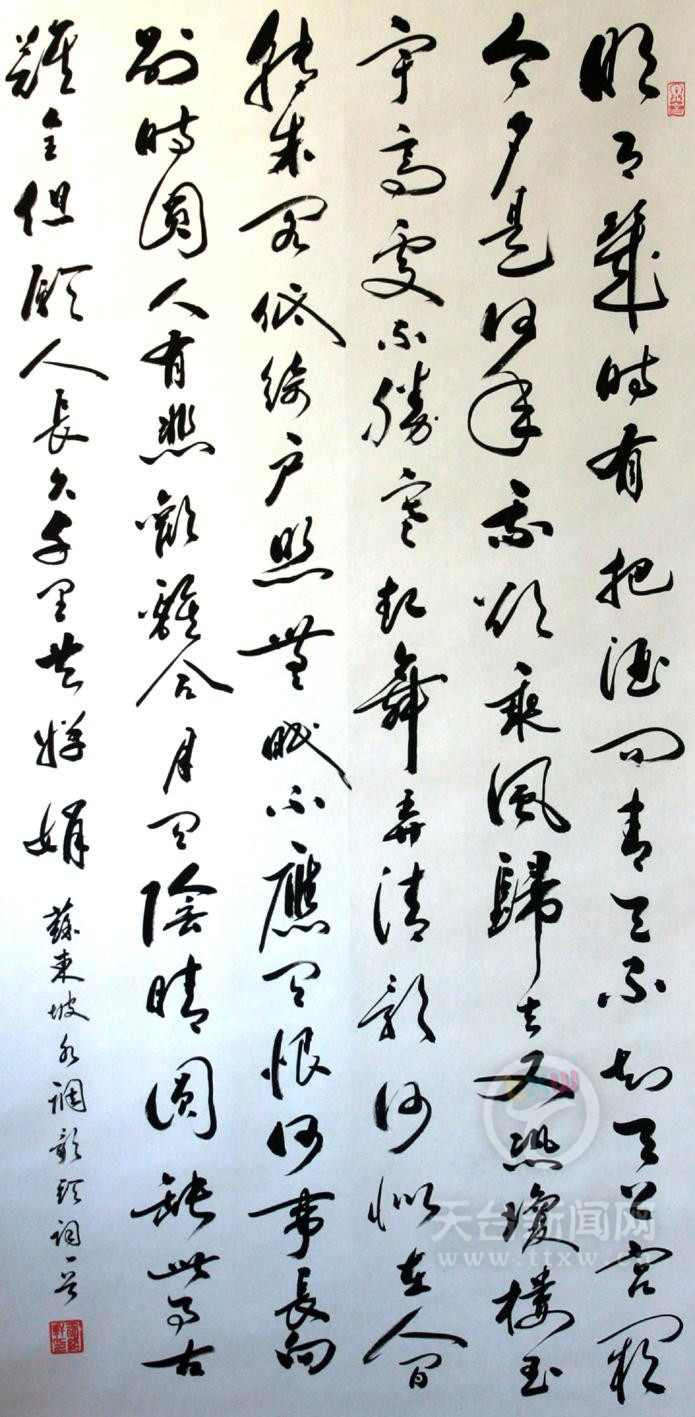 明月幾時有把酒問青天不知天上宮闕
今夕是何年我欲乘風歸去又恐瓊樓玉
宇高處不勝寒起舞弄清影何似在人間
轉朱閣低綺戶照無眠不應有恨何事長向
別時圓人有悲歡離合月有陰晴圓缺此事古
難全但願人長久千里共嬋娟
蘇東坡水調歌頭詞一首
天台新闻网
www.ttxw.cn